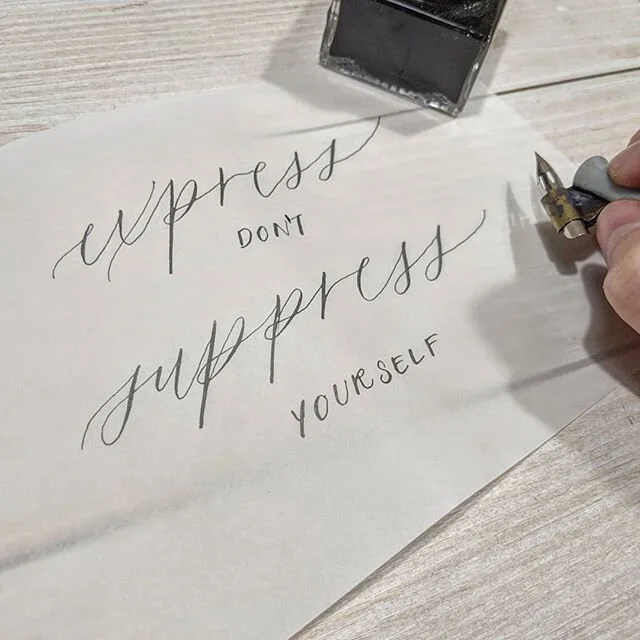 express
DON'T
suppress
YOURSELF